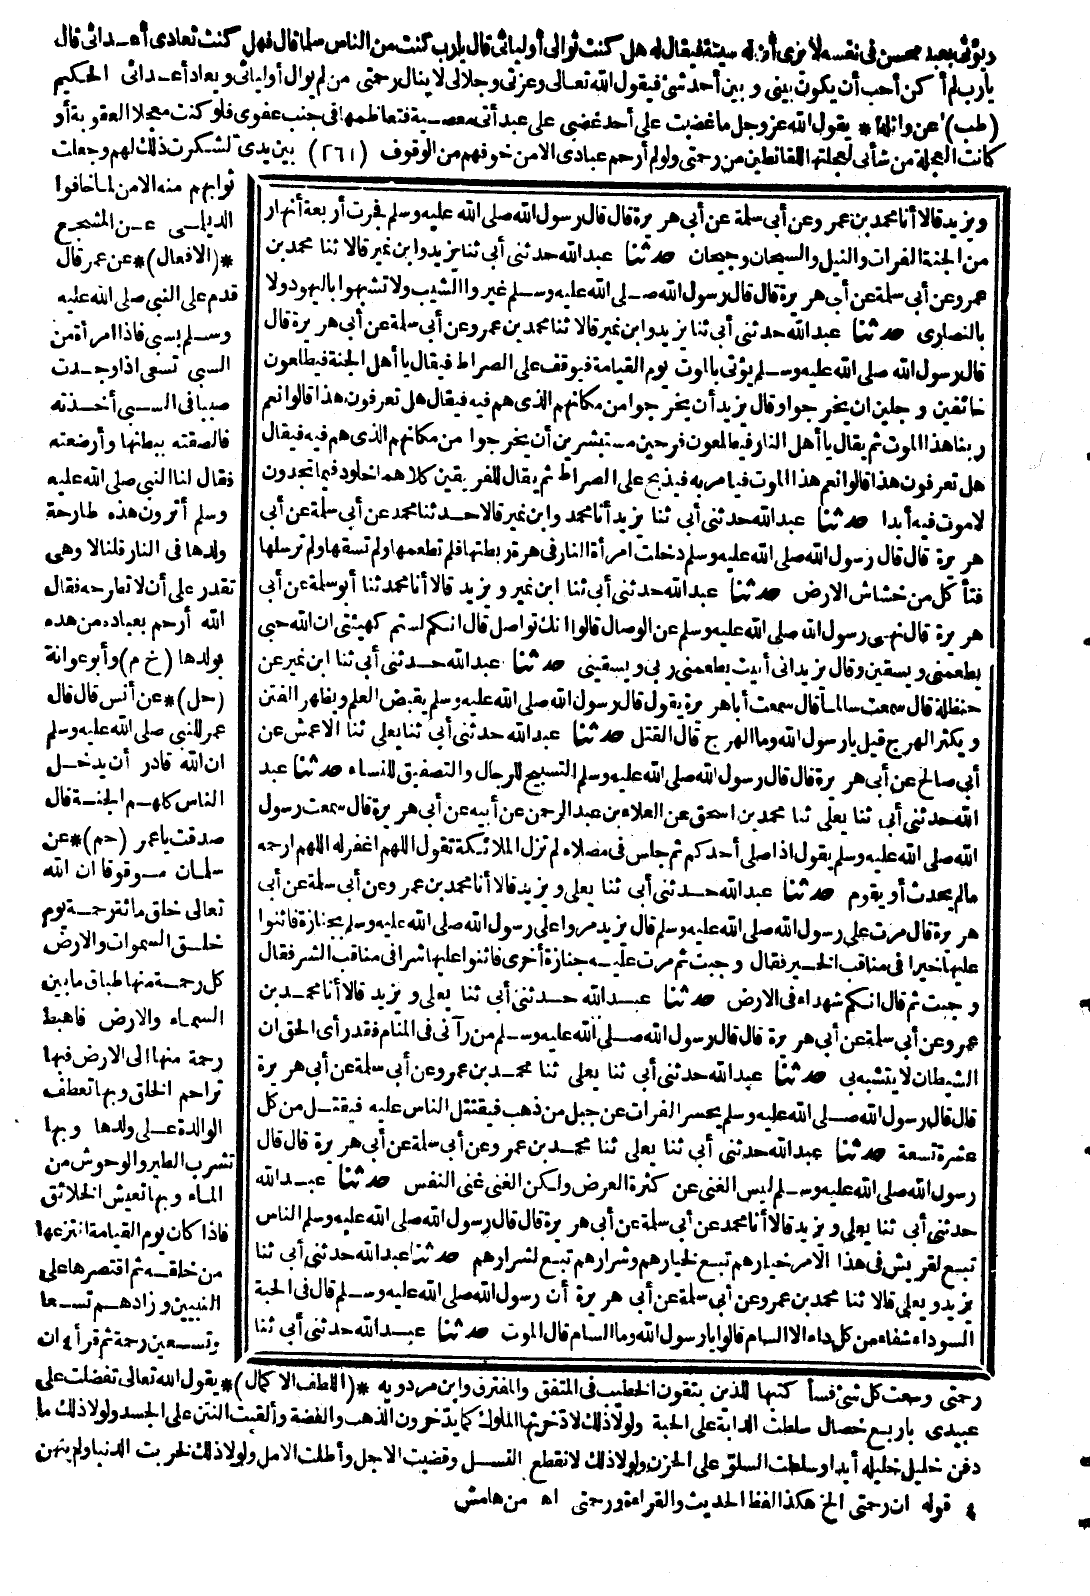 ويؤتى بعبد محسن في نفسه لا يرى أن له سيئة فيقال له هل كنت توالى أوليائى قال يارب كنت من الناس سلما قال فهل كنت تعادى أعدائى قال
يارب لم أكن أحب أن يكون بينى وبين أحد شئ فيقول الله تعالى وعزتى وجلالى لا ينال رحمتى من لم يوال أوليائى ويعاد أعدائى الحكيم
(طب) عن واثلة * يقول الله عز وجل ما غضبت على أحد غضبى على عبد أتى معصية فتعاظمها فى جنب عفوى فلو كنت معجلا العقوبة أو
كانت العجلة من شأنى لعجلتها للقانطين من رحمتى ولو لم أرحم عبادى الا من خوفهم من الوقوف (٢٦١) بين يدى لشكرت ذلك لهم وجعلت
ثوابهم منه الامن لما خافوا
الديلمى عن المنتجع
*(الافعال)* عن عمر قال
قدم على النبى صلى الله عليه
وسلم بسبى فاذا امرأة من
السبى تسعى اذا وجدت
صبيا فى السبى أخذته
فالصقته ببطنها وأرضعته
فقال لنا النبى صلى الله عليه
وسلم أترون هذه طارحة
ولدها فى النار قلنا لا وهى
تقدر على أن لا تطرحه فقال
الله أرحم بعباده من هذه
بولدها (خ م) وأبو عوانة
(حل)* عن أنس قال قال
عمر للنبى صلى الله عليه وسلم
ان الله قادر أن يدخل
الناس كلهم الجنة قال
صدقت يا عمر (حم)* عن
سلمان موقوفا ان الله
تعالى خلق مائة رحمة يوم
خلق السموات والارض
كل رحمة منها طباق ما بين
السماء والارض فاهبط
رحمة منها الى الارض فبها
تراحم الخلق وبها تعطف
الوالدة على ولدها وبها
تشرب الطير والوحوش من
الماء وبها تعيش الخلائق
فاذا كان يوم القيامة انتزعها
من خلقه ثم اقتصرها على
النبيين وزادهم تسعا
وتسعين رحمة ثم قرأ ٤ ان
ويزيد قالا أنا محمد بن عمرو عن أبى سلمة عن أبى هريرة قال قال رسول الله صلى الله عليه وسلم فجرت أربعة أنهار
من الجنة الفرات والنيل والسيحان وجيحان حدثنا عبد الله حدثنى أبى ثنا يزيد وابن نمير قالا ثنا محمد بن
عمرو عن أبى سلمة عن أبى هريرة قال قال رسول الله صلى الله عليه وسلم غيروا الشيب ولا تشبهوا باليهود ولا
بالنصارى حدثنا عبد الله حدثنى أبى ثنا يزيد وابن نمير قالا ثنا محمد بن عمرو عن أبى سلمة عن أبى هريرة قال
قال رسول الله صلى الله عليه وسلم يؤتى بالموت يوم القيامة فيوقف على الصراط فيقال يا أهل الجنة فيطلعون
خائفين وجلين ان يخرجوا وقال يزيد أن يخرجوا من مكانهم الذى هم فيه فيقال هل تعرفون هذا قالوا نعم
ربنا هذا الموت ثم يقال يا أهل النار فيطلعون فرحين مستبشرين أن يخرجوا من مكانهم الذى هم فيه فيقال
هل تعرفون هذا قالوا نعم هذا الموت فيأمر به فيذبح على الصراط ثم يقال للفريقين كلاهما خلود فيما تجدون
لا موت فيه أبدا حدثنا عبد الله حدثنى أبى ثنا يزيد أنا محمد وابن نمير قالا حدثنا محمد عن أبى سلمة عن أبى
هريرة قال قال رسول الله صلى الله عليه وسلم دخلت امرأة النار فى هرة ربطتها فلم تطعمها ولم تسقها ولم ترسلها
فتأكل من خشاش الارض حدثنا عبد الله حدثنى أبى ثنا ابن نمير ويزيد قالا أنا محمد ثنا أبو سلمة عن أبى
هريرة قال نهى رسول الله صلى الله عليه وسلم عن الوصال قالوا انك تواصل قال انكم لستم كهيئتى ان الله حبى
يطعمنى ويسقين وقال يزيد انى أبيت يطعمنى ربى ويسقينى حدثنا عبد الله حدثنى أبى ثنا ابن نمير عن
حنظلة قال سمعت سالما قال سمعت أبا هريرة يقول قال رسول الله صلى الله عليه وسلم يقبض العلم ويظهر الفتن
ويكثر الهرج قيل يا رسول الله وما الهرج قال القتل حدثنا عبد الله حدثنى أبى ثنا يعلى ثنا الاعمش عن
أبى صالح عن أبى هريرة قال قال رسول الله صلى الله عليه وسلم التسبيح للرجال والتصفيق للنساء حدثنا عبد
الله حدثنى أبى ثنا يعلى ثنا محمد بن اسحق عن العلاء بن عبد الرحمن عن أبيه عن أبى هريرة قال سمعت رسول
الله صلى الله عليه وسلم يقول اذا صلى أحدكم ثم جلس فى مصلاه لم تزل الملائكة تقول اللهم اغفر له اللهم ارحمه
مالم يحدث أو يقوم حدثنا عبد الله حدثنى أبى ثنا يعلى ويزيد قالا أنا محمد بن عمرو عن أبى سلمة عن أبى
هريرة قال مرت على رسول الله صلى الله عليه وسلم قال يزيد مروا على رسول الله صلى الله عليه وسلم بجنازة فاثنوا
عليها خيرا فى مناقب الخير فقال وجبت ثم مرت عليه جنازة أخرى فاثنوا عليها شرا فى مناقب الشر فقال
وجبت ثم قال انكم شهداء فى الارض حدثنا عبد الله حدثنى أبى ثنا يعلى ويزيد قالا أنا محمد بن
عمرو عن أبى سلمة عن أبى هريرة قال قال رسول الله صلى الله عليه وسلم من رآنى فى المنام فقد رأى الحق ان
الشيطان لا يتشبه بى حدثنا عبد الله حدثنى أبى ثنا يعلى ثنا محمد بن عمرو عن أبى سلمة عن أبى هريرة
قال قال رسول الله صلى الله عليه وسلم يحسر الفرات عن جبل من ذهب فيقتتل الناس عليه فيقتل من كل
عشرة تسعة حدثنا عبد الله حدثنى أبى ثنا يعلى ثنا محمد بن عمرو عن أبى سلمة عن أبى هريرة قال قال
رسول الله صلى الله عليه وسلم ليس الغنى عن كثرة العرض ولكن الغنى غنى النفس حدثنا عبد الله
حدثنى أبى ثنا يعلى ويزيد قالا أنا محمد عن أبى سلمة عن أبى هريرة قال قال رسول الله صلى الله عليه وسلم الناس
تبع لقريش فى هذا الامر خيارهم تبع لخيارهم وشرارهم تبع لشرارهم حدثنا عبد الله حدثنى أبى ثنا
يزيد ويعلى قالا ثنا محمد بن عمرو عن أبى سلمة عن أبى هريرة أن رسول الله صلى الله عليه وسلم قال فى الحبة
السوداء شفاء من كل داء الا السام قالوا يا رسول الله وما السام قال الموت حدثنا عبد الله حدثنى أبى ثنا
رحمتى وسعت كل شئ فسأكتبها للذين يتقون الخطيب فى المتفق والمفترق وابن مردويه *(اللطف الاكمال)* يقول الله تعالى تفضلت على
عبيدى باربع خصال سلطت الدابة على الحبة ولولا ذلك لادخرتها الملوك كما يدخرون الذهب والفضة وألقيت النتن على الجسد ولولا ذلك ما
دفن خليل خليله أبدا وسلطت السلو على الحزن ولولا ذلك لانقطع النسل وقضيت الاجل وأطلت الامل ولولا ذلك لخربت الدنيا ولم يتهن
٤ قوله ان رحمتى الخ هكذا لفظ الحديث والقراءة ورحمتى اه من هامش